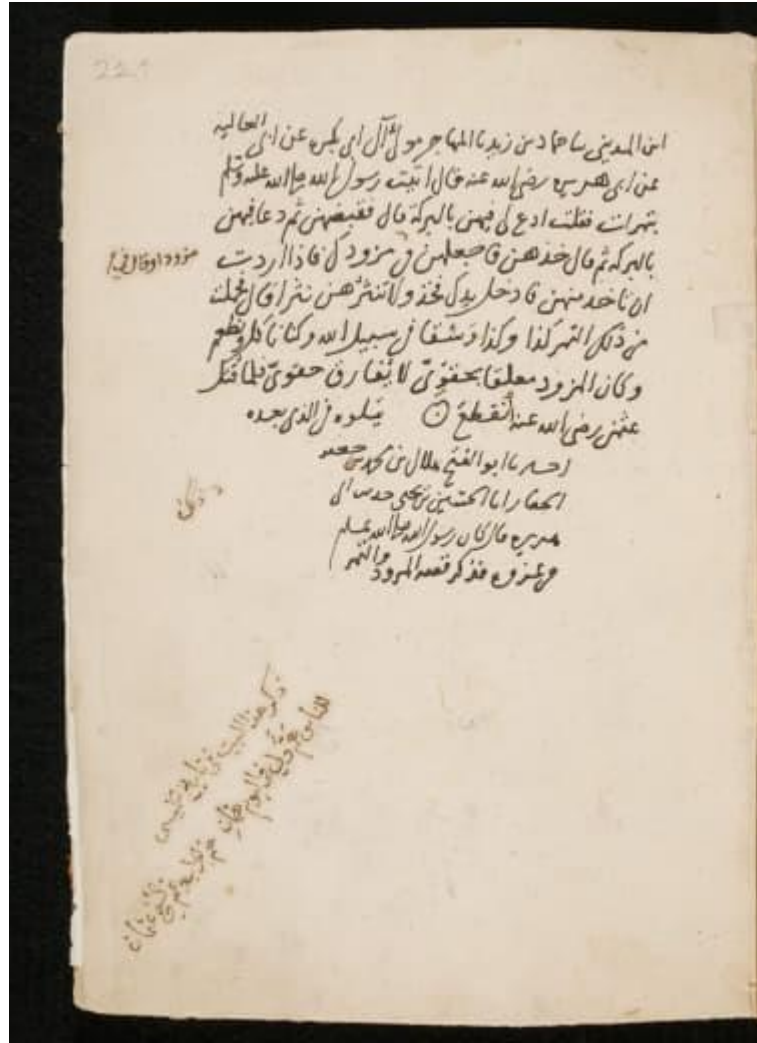 ابن المديني نا حماد بن زيد نا المهاجر مولى آل ابي بكره عن ابي العاليه
عن ابي هريره رضي الله عنه قال اتيت رسول الله صلى الله عليه وسلم
بتمرات فقلت ادع لي فيهن بالبركة قال فقبضهن ثم دعا فيهن
بالبركه ثم قال خذهن فاجعلهن في مزودك فاذا اردت
ان تاخذ منهن فادخل يدك فخذ ولا تنثرهن نثرا قال فحملت
من ذلك التمر كذا وكذا وسقا في سبيل الله وكنا ناكل ونطعم
وكان المزود معلقا بحقوى لا يفارق حقوى فلما قتل
عثمن رضي الله عنه انقطع يتلوه في الذي بعده
مزود او قال في
ابو الفتح هلال بن محمد بن جعفر
الحفار انا الحسين بن يحيى
هريره قال كان رسول الله صلى الله عليه وسلم
في غزوه فذكر قصه المزود والتمر
ذكر هذا البيت في
للناس هم ولي في اليوم همان هم
عثمان